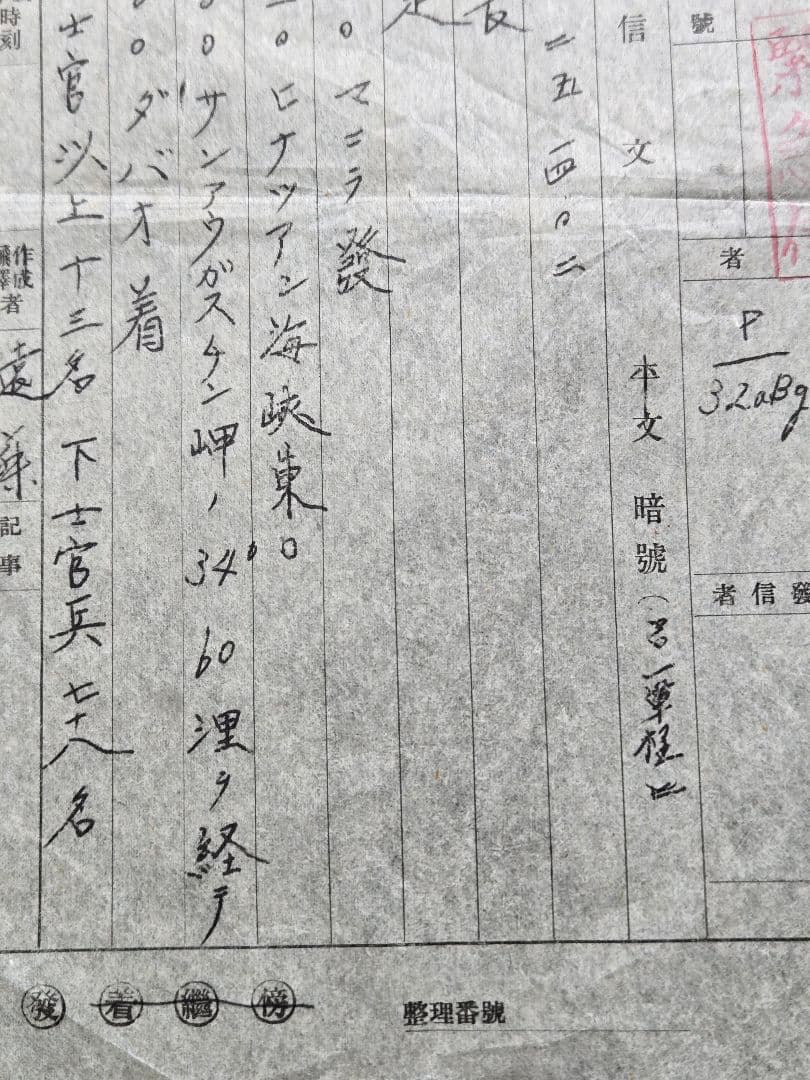 號
緊急
者
P
32aBg
發信者
信文
平文 暗號（呂一
二五一四〇二
長
マニラ發
ヒナツアン海峡東口
サンアウガスチン岬ノ 34° 60 浬ヲ経テ
ダバオ着
士官以上十三名 下士官兵七十八名
時刻
作成
者
遠藤
記事
發 着 繼 傍
整理番號